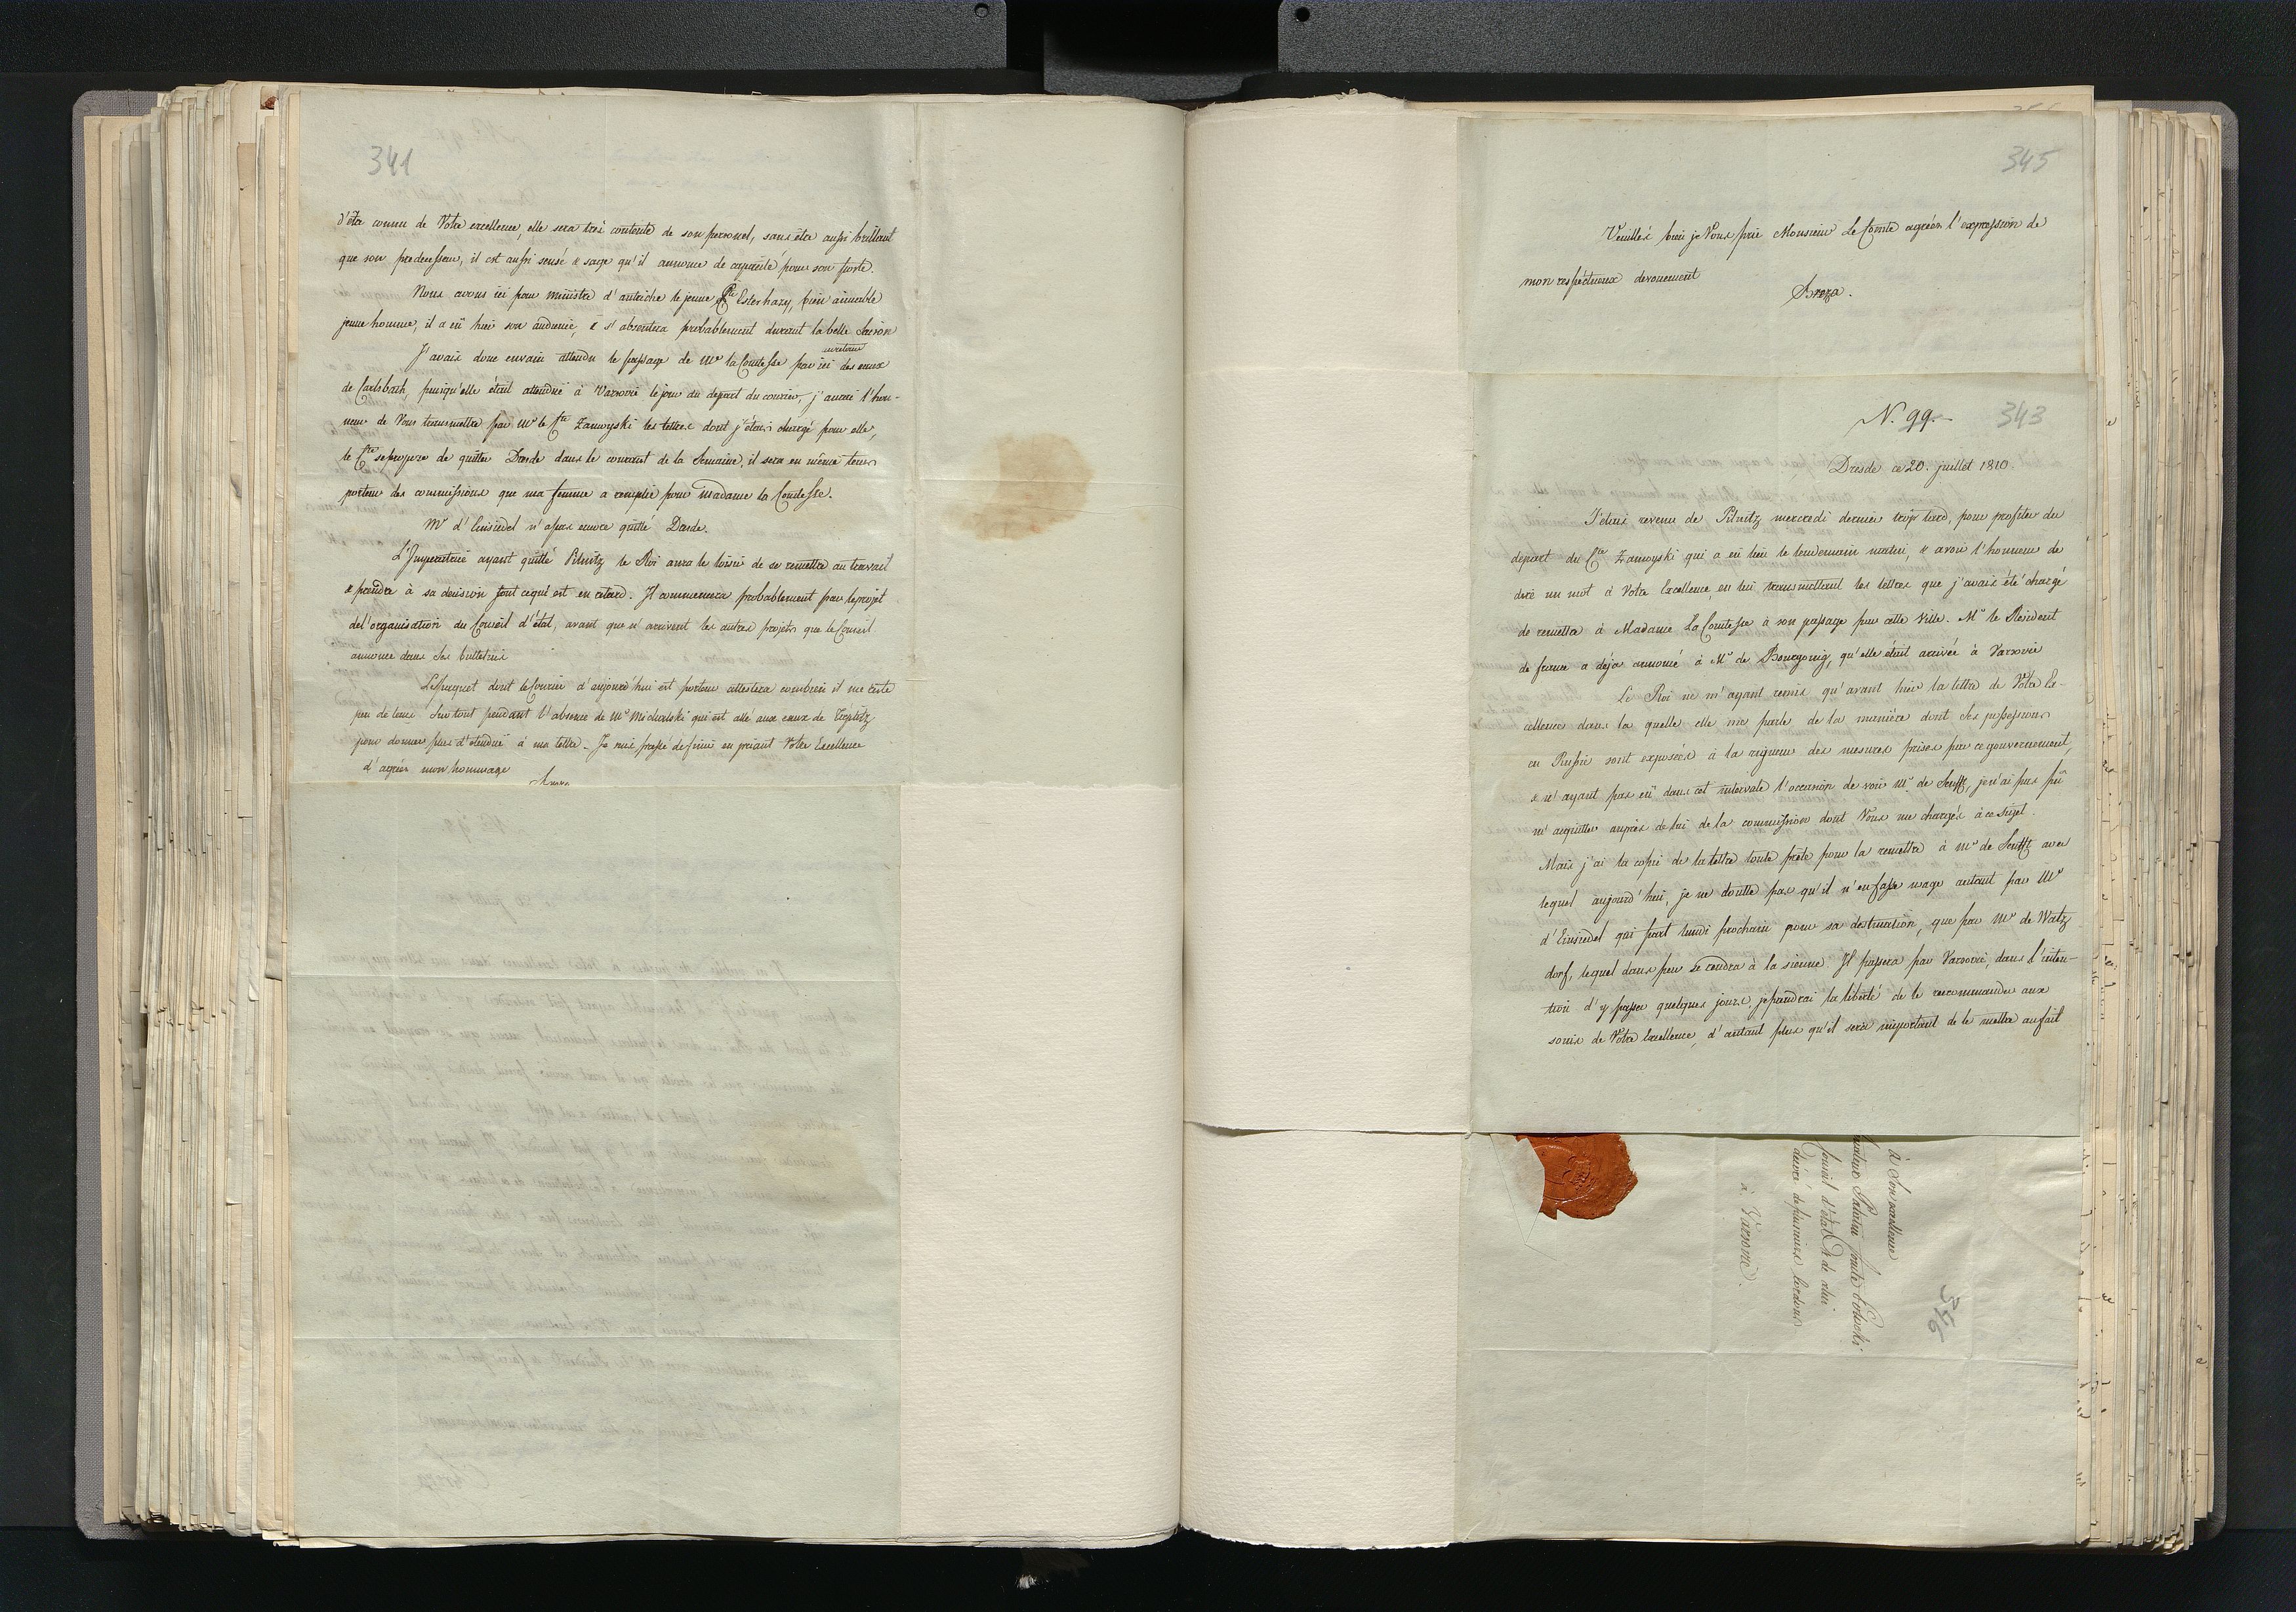 341
d'être connu de Votre excellence, elle sera très contente de son personel, sans être aussi brillant
que son predecesseur, il est aussi sensé & sage qu'il annonce de capacité pour son poste.
Nous avons ici pour ministre d'autriche le jeune Pce Esterhazy, bien aimable
jeune homme, il a eü hier son audience, & s'absentera probablement durant la belle Saison
J'avais donc envain attendu le passage de Me la Comtesse par ici des eaux
de Carlsbath, puisqu'elle était attendue à Varsovie le jour du depart du courier, j'aurai l'hon-
neur de Vous transmettre par Mr le Cte Zamoyski les lettres dont j'étais chargé pour elle,
le Cte se propose de quitter Dresde dans le courant de la Semaine, il sera en même tems
porteur des commissions que ma femme a remplie pour Madame la Comtesse.
Mr d'Einsiedel n'a pas encore quitté Dresde.
L'Imperatrice ayant quitté Pilnitz le Roi aura le loisir de se remettre au travail
& prendre à sa decision tout ce qui est en retard. Il commencera probablement par le projet
de l'organisation du Conseil d'état, avant que n'arrivent les autres projets que le Conseil
annonce dans ses bulletins
Le paquet dont le Courier d'aujourd'hui est porteur attestera combien il me reste
peu de tems Surtout pendant l'absence de Mr Michalski qui est allé aux eaux de Töplitz
pour donner plus d'etendue à ma lettre. Je suis pressé de finir en priant Votre Excellence
d'agréer mon hommage
345
Veuillés bien je Vous prie Monsieur Le Comte agréer l'expression de
mon respectueux devouement
Breza.
N. 99.
343
Dresde ce 20. juillet 1810.
J'étais revenu de Pilnitz mercredi dernier trop tard, pour profiter du
depart du Cte Zamoyski qui a eü lieu le lendemain matin, & avoir l'honneur de
dire un mot à Votre Excellence, en lui transmettant les lettres que j'avais été chargé
de remettre à Madame La Comtesse à son passage par cette Ville. Mr le Resident
de france a déja annoncé à Mr de Bourgoing, qu'elle était arrivée à Varsovie
Le Roi ne m'ayant remis qu'avant hier la lettre de Votre Ex-
cellence dans la quelle elle me parle de la manière dont Ses possessions
en Russie sont exposées à la rigueur des mesures prises par ce gouvernement,
& n'ayant pas eü dans cet intervale l'occasion de voir Mr. de Senfft, je n'ai pas pü
m'acquitter auprès de lui de la commission dont Vous me chargés à ce sujet.
Mais j'ai la copie de la lettre toute prête pour la remettre à Mr de Senfft avec
lequel aujourd'hui, je ne doutte pas qu'il n'en fasse usage autant par Mr
d'Einsiedel qui part lundi prochain pour sa destination, que par Mr de Watz
dorf, lequel dans peu se rendra à la sienne. Il passera par Varsovie, dans l'inten-
tion d'y passer quelques jours, je prendrai la liberté de le recommander aux
soins de Votre Excellence, d'autant plus qu'il sera important de le mettre au fait
à Son excellence
Palatin Comte Potocki
Conseil d'état & de celui
décoré de plusieurs Cordons
à Varsovie.
346